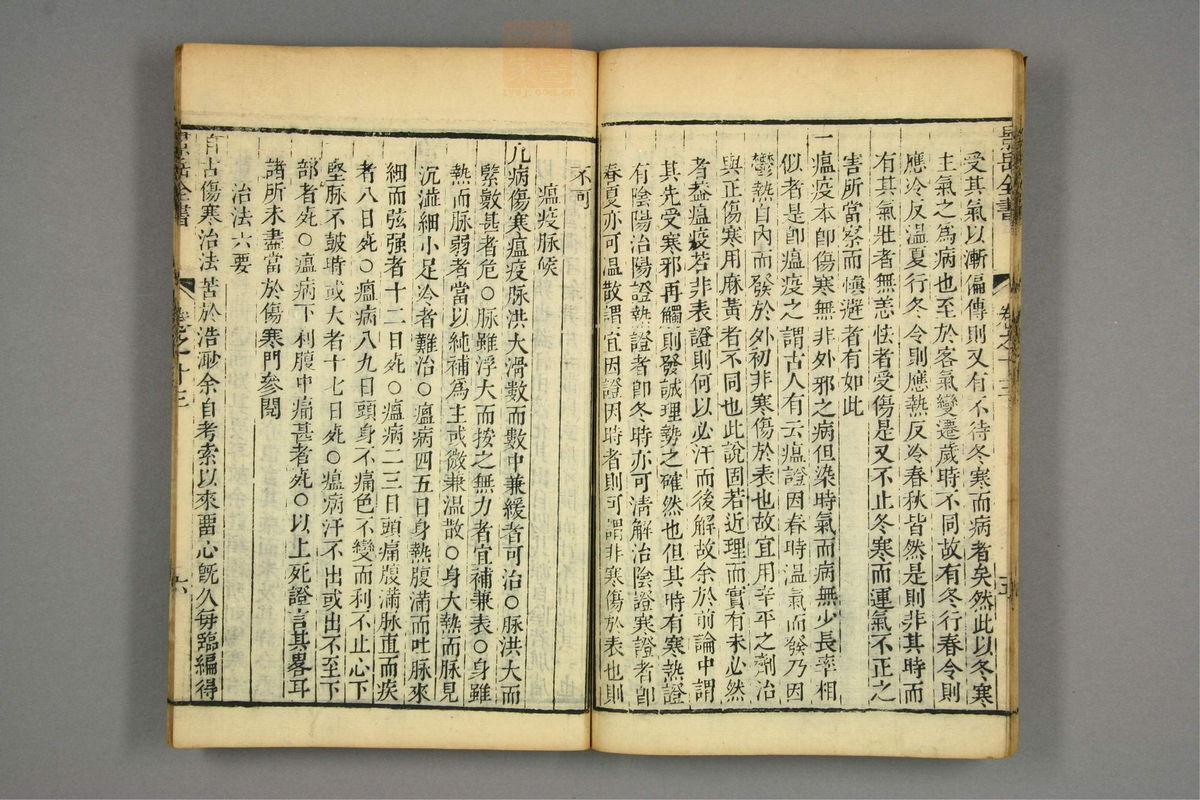 景岳全書
卷之十三
五
受其氣以漸徧傳則又有不待冬寒而病者矣然此以冬寒
主氣之爲病也至於客氣變遷歲時不同故有冬行春令則
應冷反温夏行冬令則應熱反冷春秋皆然是則非其時而
有其氣壯者無恙怯者受傷是又不止冬寒而運氣不正之
害所當察而愼避者有如此
一瘟疫本卽傷寒無非外邪之病但染時氣而病無少長率相
似者是卽瘟疫之謂古人有云瘟證因春時温氣而發乃因
鬱熱自內而發於外初非寒傷於表也故宜用辛平之劑治
與正傷寒用麻黄者不同也此說固若近理而實有未必然
者葢瘟疫若非表證則何以必汗而後解故余於前論中謂
其先受寒邪再觸則發誠理勢之確然也但其時有寒熱證
有陰陽治陽證熱證者卽冬時亦可淸解治陰證寒證者卽
春夏亦可温散謂宜因證因時者則可謂非寒傷於表也則
不可
瘟疫脉候
凡病傷寒瘟疫脉洪大滑數而數中兼緩者可治○脉洪大而
緊數甚者危○脉雖浮大而按之無力者宜補兼表○身雖
熱而脉弱者當以純補爲主或微兼温散○身大熱而脉見
沉澁細小足冷者難治○瘟病四五日身熱腹滿而吐脉來
細而弦强者十二日死○瘟病二三日頭痛腹滿脉直而疾
者八日死○瘟病八九日頭身不痛色不變而利不止心下
堅脉不鼓時或大者十七日死○瘟病汗不出或出不至下
部者死○瘟病下利腹中痛甚者死○以上死證言其畧耳
諸所未盡當於傷寒門參閱
治法六要
自古傷寒治法苦於浩渺余自考索以來畱心旣久每臨編得
景岳全書
卷之十三
六